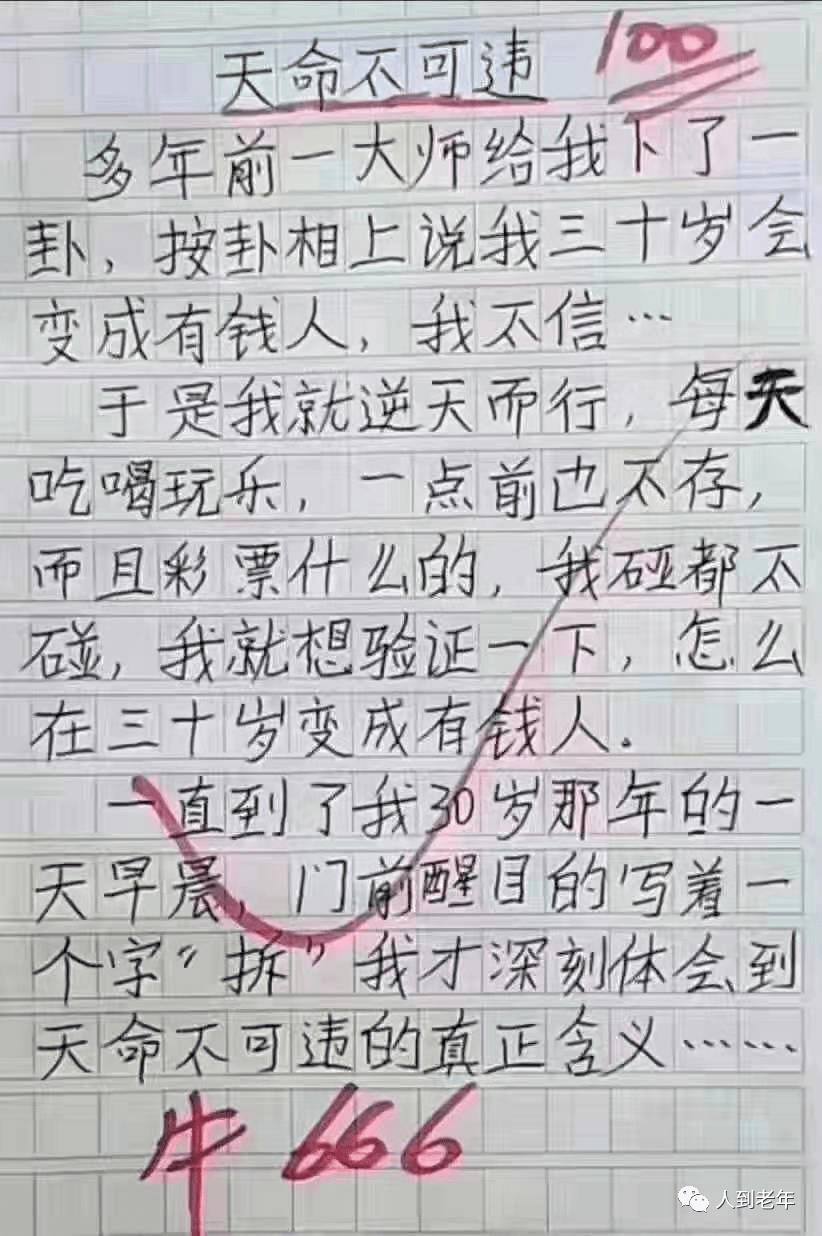 天命不可违 100
多年前一大师给我下了一
卦，按卦相上说我三十岁会
变成有钱人，我不信…
于是我就逆天而行，每天
吃喝玩乐，一点前也不存，
而且彩票什么的，我碰都不
碰，我就想验证一下，怎么
在三十岁变成有钱人。
一直到了我30岁那年的一
天早晨，门前醒目的写着一
个字“拆”我才深刻体会到
天命不可违的真正含义……
牛666
人到老年